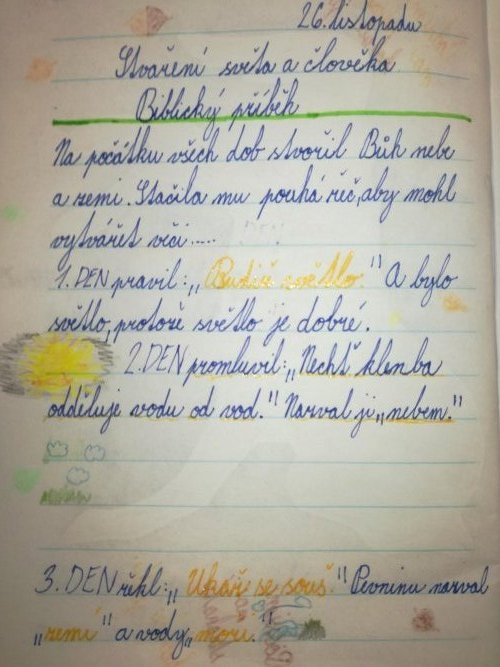 26. listopadu
Stvaření světa a člověka
Biblický příběh
Na počátku všech dob stvořil Bůh nebe
a zemi. Stačila mu pouhá řeč, aby mohl
vytvářet věci.....
1. DEN pravil: „Budiž světlo." A bylo
světlo, protože světlo je dobré.
2. DEN promluvil: „Nechť klenba
odděluje vodu od vod." Nazval ji „nebem."
3. DEN řekl: „Ukaž se souš." Pevninu nazval
„zemí" a vody „moři."